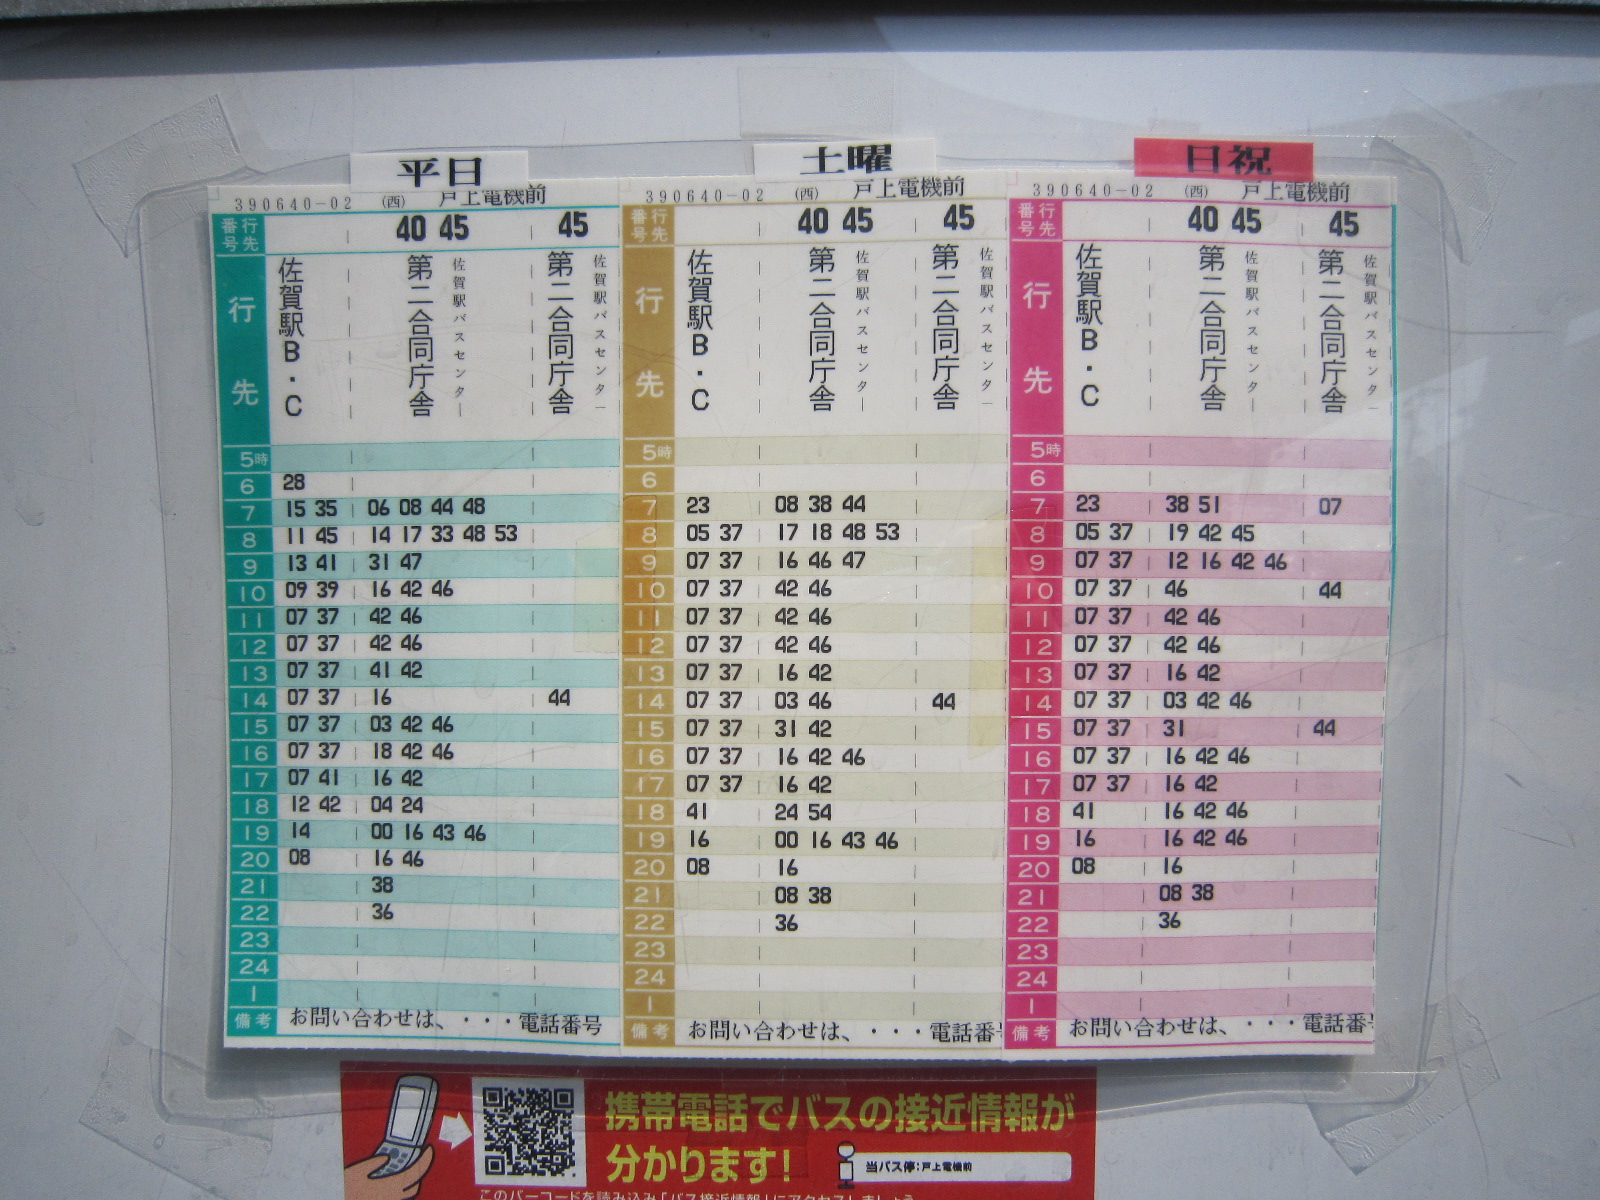 平日
390640-02 (西) 戸上電機前
行先番号 40 45 45
行先 佐賀駅B・C 第二合同庁舎 佐賀駅バスセンター 第二合同庁舎 佐賀駅バスセンター
5時
6 28
7 15 35 06 08 44 48
8 11 45 14 17 33 48 53
9 13 41 31 47
10 09 39 16 42 46
11 07 37 42 46
12 07 37 42 46
13 07 37 41 42
14 07 37 16 44
15 07 37 03 42 46
16 07 37 18 42 46
17 07 41 16 42
18 12 42 04 24
19 14 00 16 43 46
20 08 16 46
21 38
22 36
23
24
1
備考 お問い合わせは、・・・電話番号
土曜
390640-02 (西) 戸上電機前
行先番号 40 45 45
行先 佐賀駅B・C 第二合同庁舎 佐賀駅バスセンター 第二合同庁舎 佐賀駅バスセンター
5時
6
7 23 08 38 44
8 05 37 17 18 48 53
9 07 37 16 46 47
10 07 37 42 46
11 07 37 42 46
12 07 37 42 46
13 07 37 16 42
14 07 37 03 46 44
15 07 37 31 42
16 07 37 16 42 46
17 07 37 16 42
18 41 24 54
19 16 00 16 43 46
20 08 16
21 08 38
22 36
23
24
1
備考 お問い合わせは、・・・電話番号
日祝
390640-02 (西) 戸上電機前
行先番号 40 45 45
行先 佐賀駅B・C 第二合同庁舎 佐賀駅バスセンター 第二合同庁舎 佐賀駅バスセンター
5時
6
7 23 38 51 07
8 05 37 19 42 45
9 07 37 12 16 42 46
10 07 37 46 44
11 07 37 42 46
12 07 37 42 46
13 07 37 16 42
14 07 37 03 42 46
15 07 37 31 44
16 07 37 16 42 46
17 07 37 16 42
18 41 16 42 46
19 16 16 42 46
20 08 16
21 08 38
22 36
23
24
1
備考 お問い合わせは、・・・電話番号
携帯電話でバスの接近情報が
分かります!
当バス停:戸上電機前
このバーコードを読み込み「バス接近情報」にアクセスしましょう